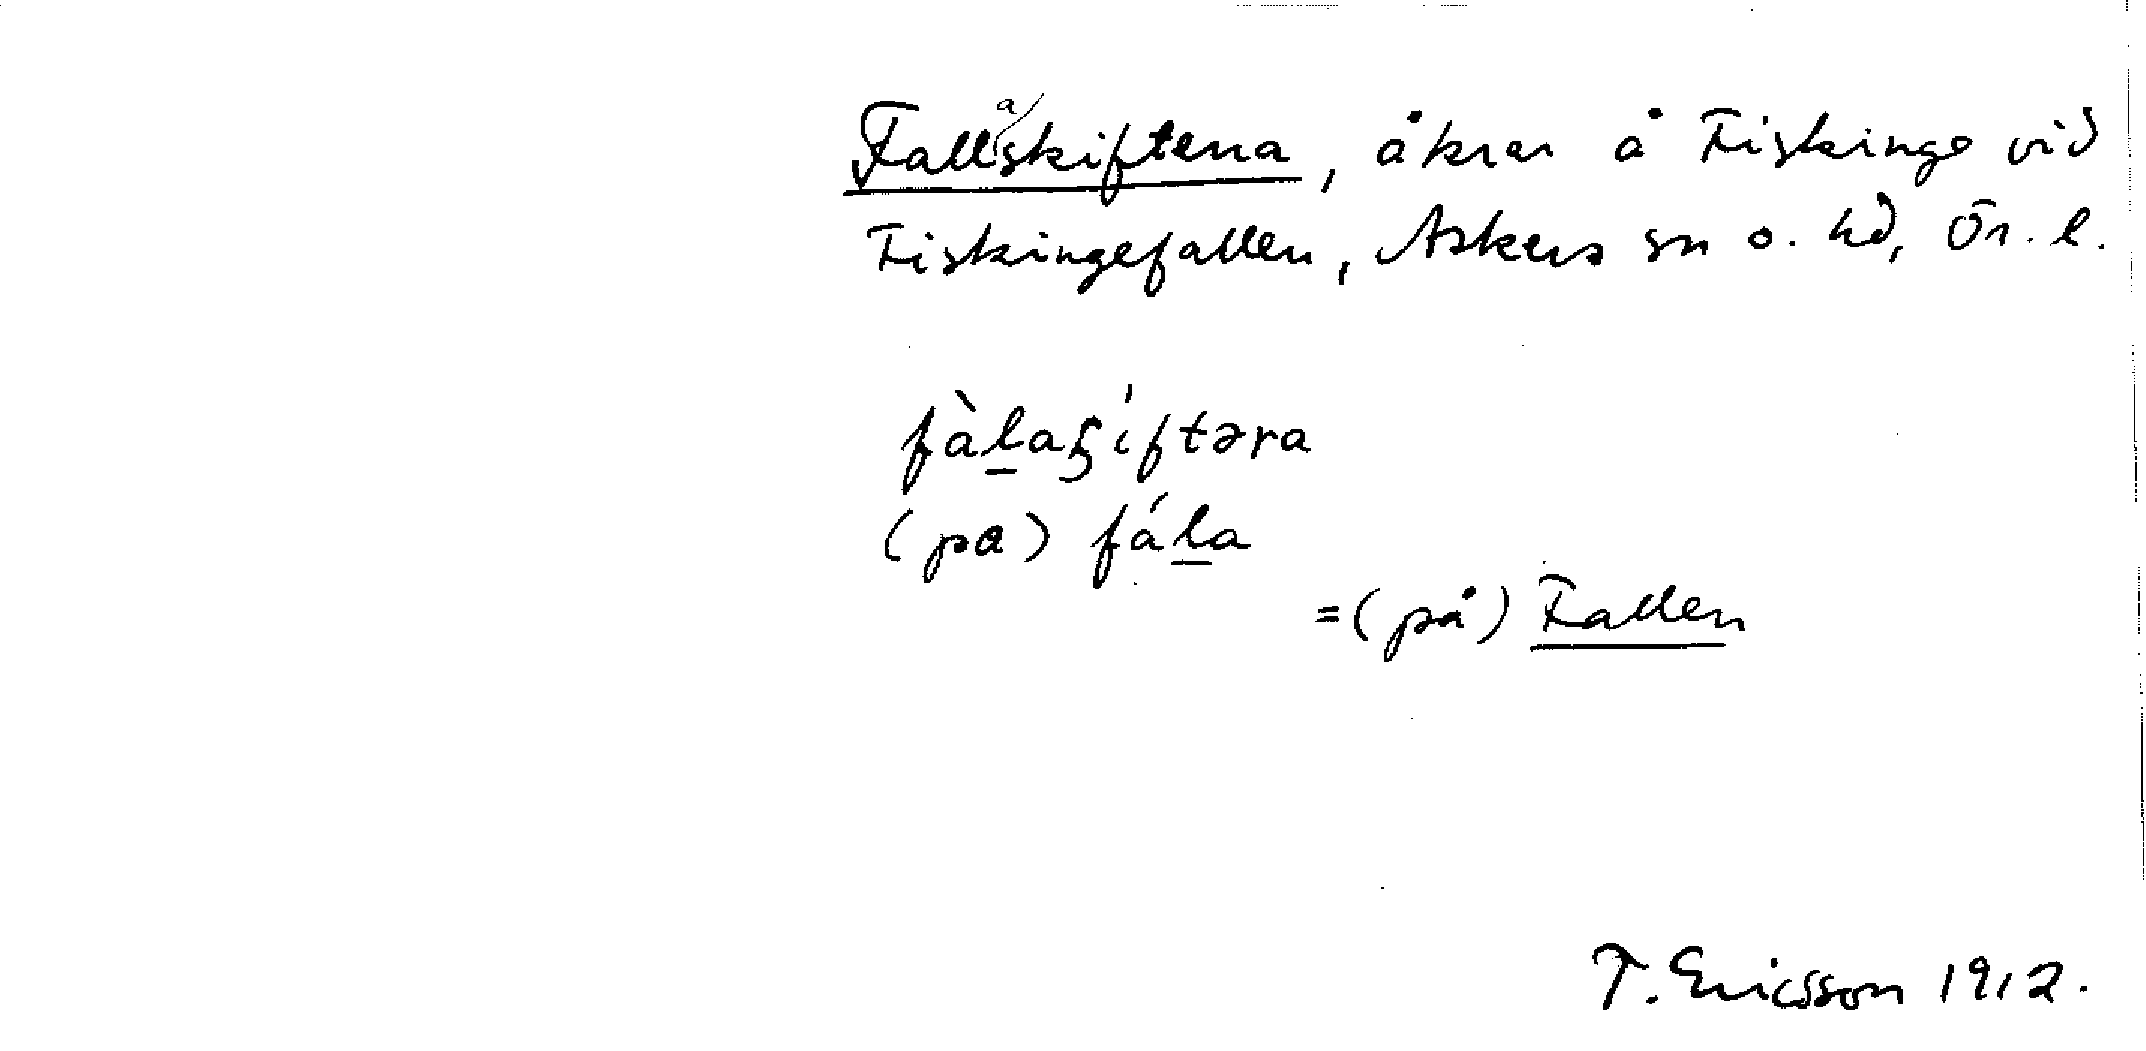 Fallaskiftena, åkrar å Fiskinge vid
Fiskingefallen, Askers sn o. hd, Ör. l.
fàl̲aʂíftəra
(pa) fál̲a
=(på) Fallen
T. Ericsson 1912.